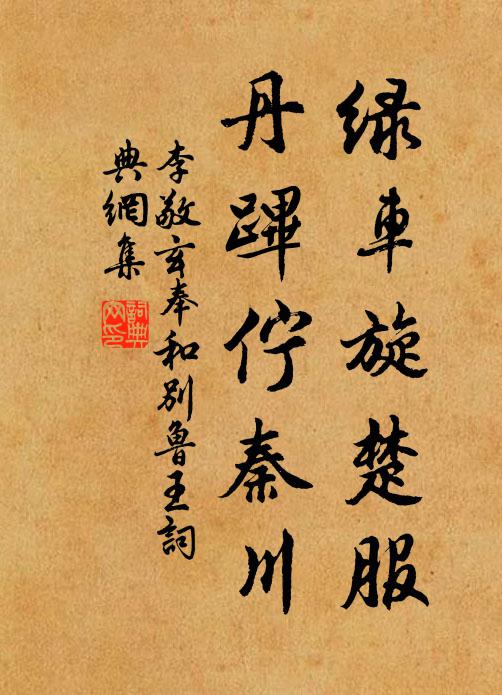 绿車旋楚服
丹蹕佇秦川
李敬玄奉和別魯王詞
典網集
詞典
网印